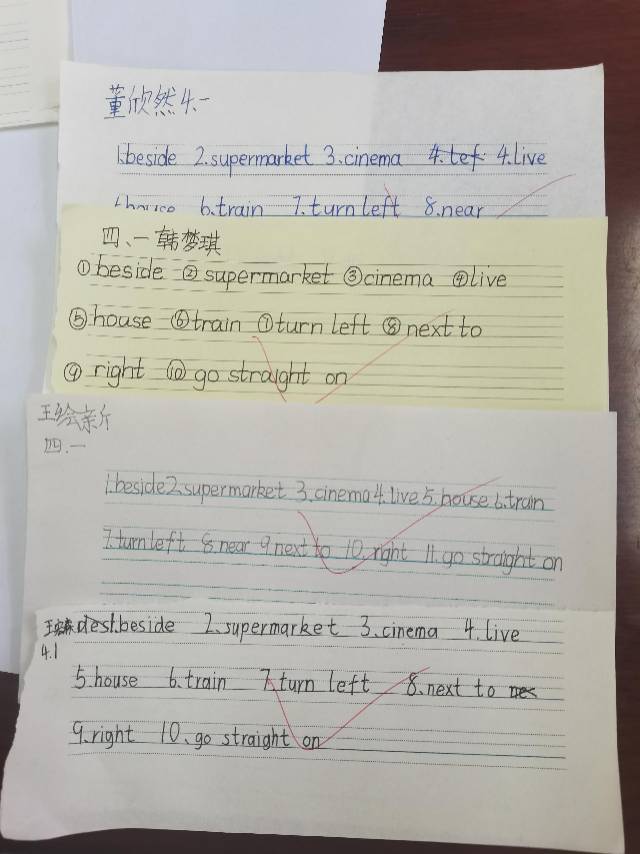 董欣然 4.一
1.beside 2.supermarket 3.cinema 4.lef 4.live
house 6.train 7.turn left 8.near
四、一 韩梦琪
①beside ②supermarket ③cinema ④live
⑤house ⑥train ⑦turn left ⑧next to
⑨right ⑩go straight on
四.一
1.beside 2.supermarket 3.cinema 4.live 5.house 6.train
7.turn left 8.near 9.next to 10.right 11.go straight on
1.beside 2.supermarket 3.cinema 4.live
4.1
5.house 6.train 7.turn left 8.next to nec
9.right 10.go straight on